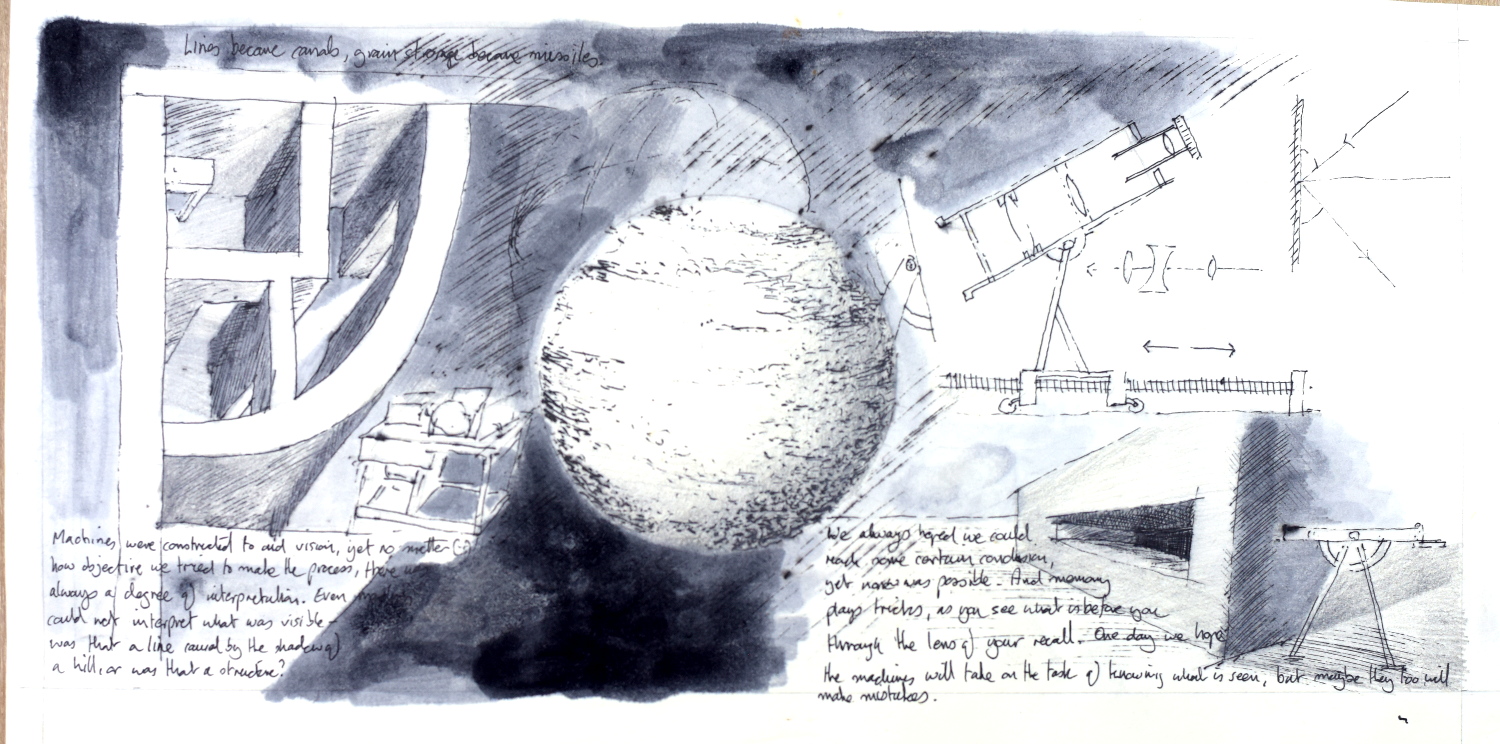 Lines became canals, grain storage became missiles.
Machines were constructed to aid vision, yet no matter
how objective we tried to make the process, there was
always a degree of interpretation. Even
could not interpret what was visible -
was that a line caused by the shadow of
a hill, or was that a structure?
We always hoped we could
reach some certain conclusion,
yet none was possible. And memory
plays tricks, as you see what is before you
through the lens of your recall. One day we hope
the machines will take on the task of knowing what is seen, but maybe they too will
make mistakes.